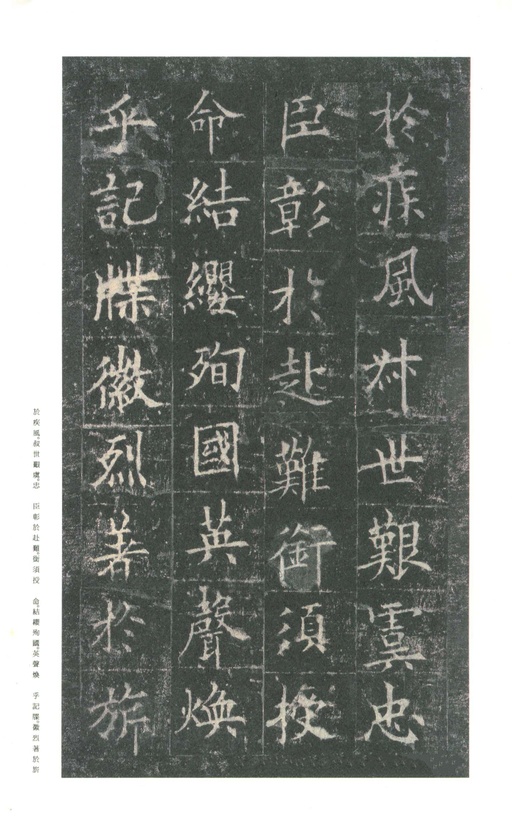 於疾風叔世艱虞忠
臣彰於赴難銜須授
命結纓殉國英聲煥
乎記牒徽烈著於旂
於疾風。叔世艱虞。忠 臣彰於赴難。銜須授 命。結纓殉國。英聲煥 乎記牒。徽烈著於旂